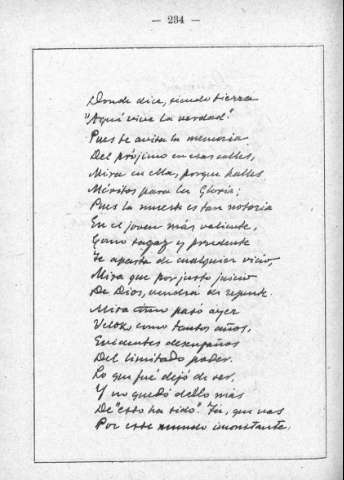 — 234 —
Donde dice, siendo tierra
"Aquí vive la verdad."
Pues te avisa la memoria
Del prójimo en esas calles,
Mira en ella, porque halles
Méritos para la Gloria;
Pues la muerte es tan notoria
En el joven más valiente,
Como sagaz y prudente
Te aparta de cualquier vicio,
Mira que por justo juicio
De Dios, vendrá de repente.
Mira pasó ayer
Veloz, como tantos años,
Evidentes desengaños
Del limitado poder.
Lo que fué dejó de ser,
Y no quedó dello más
De "esto ha sido". Tú, que vas
Por este mundo inconstante